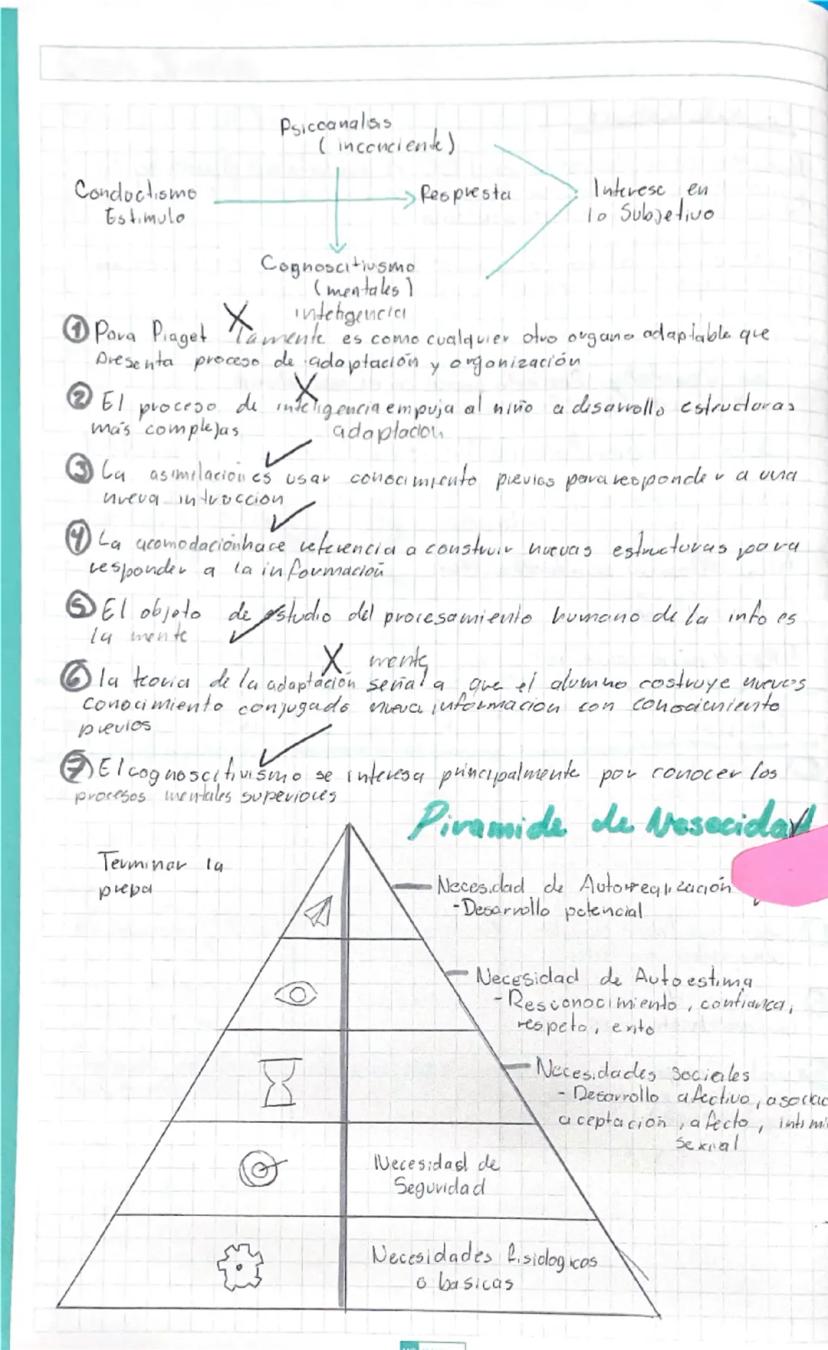 Psicoanalsis
(inconciente)
Conductismo
Estimulo
Respuesta
Interese en
lo Subjetivo
Cognoscitivismo
(mentales)
inteligencia
① Para Piaget X la mente es como cualquier otro organo adaptable que
presenta proceso de adaptación y organización
② El proceso de inteligencia empuja al niño a desarrollo estructuras
más complejas
adaptacion
③ La asimilación es usar conocimiento previos para responder a una
nueva
④ La acomodación hace referencia a construir nuevas estructuras para
responder a la información
⑤ El objeto de estudio del procesamiento humano de la info es
la mente
X mente
⑥ la teoria de la adaptación señala que el alumno costruye nuevos
conocimiento conjugado nueva informacion con conocimiento
previos
⑦ El cognoscitivismo se interesa principalmente por conocer los
procesos mentales superiores
Piramide de Nesecidad
Terminar la
prepa
Necesidad de Autorrealización
-Desarrollo potencial
Necesidad de Autoestima
- Resconocimiento, confianza,
respeto,
Necesidades Sociales
- Desarrollo afectivo, asociac
aceptación, afecto, intimi
sexual
Necesidad de
Seguridad
Necesidades fisiologicas
o basicas